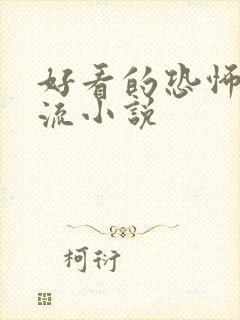 好看的恐怖
流小说
柯衍